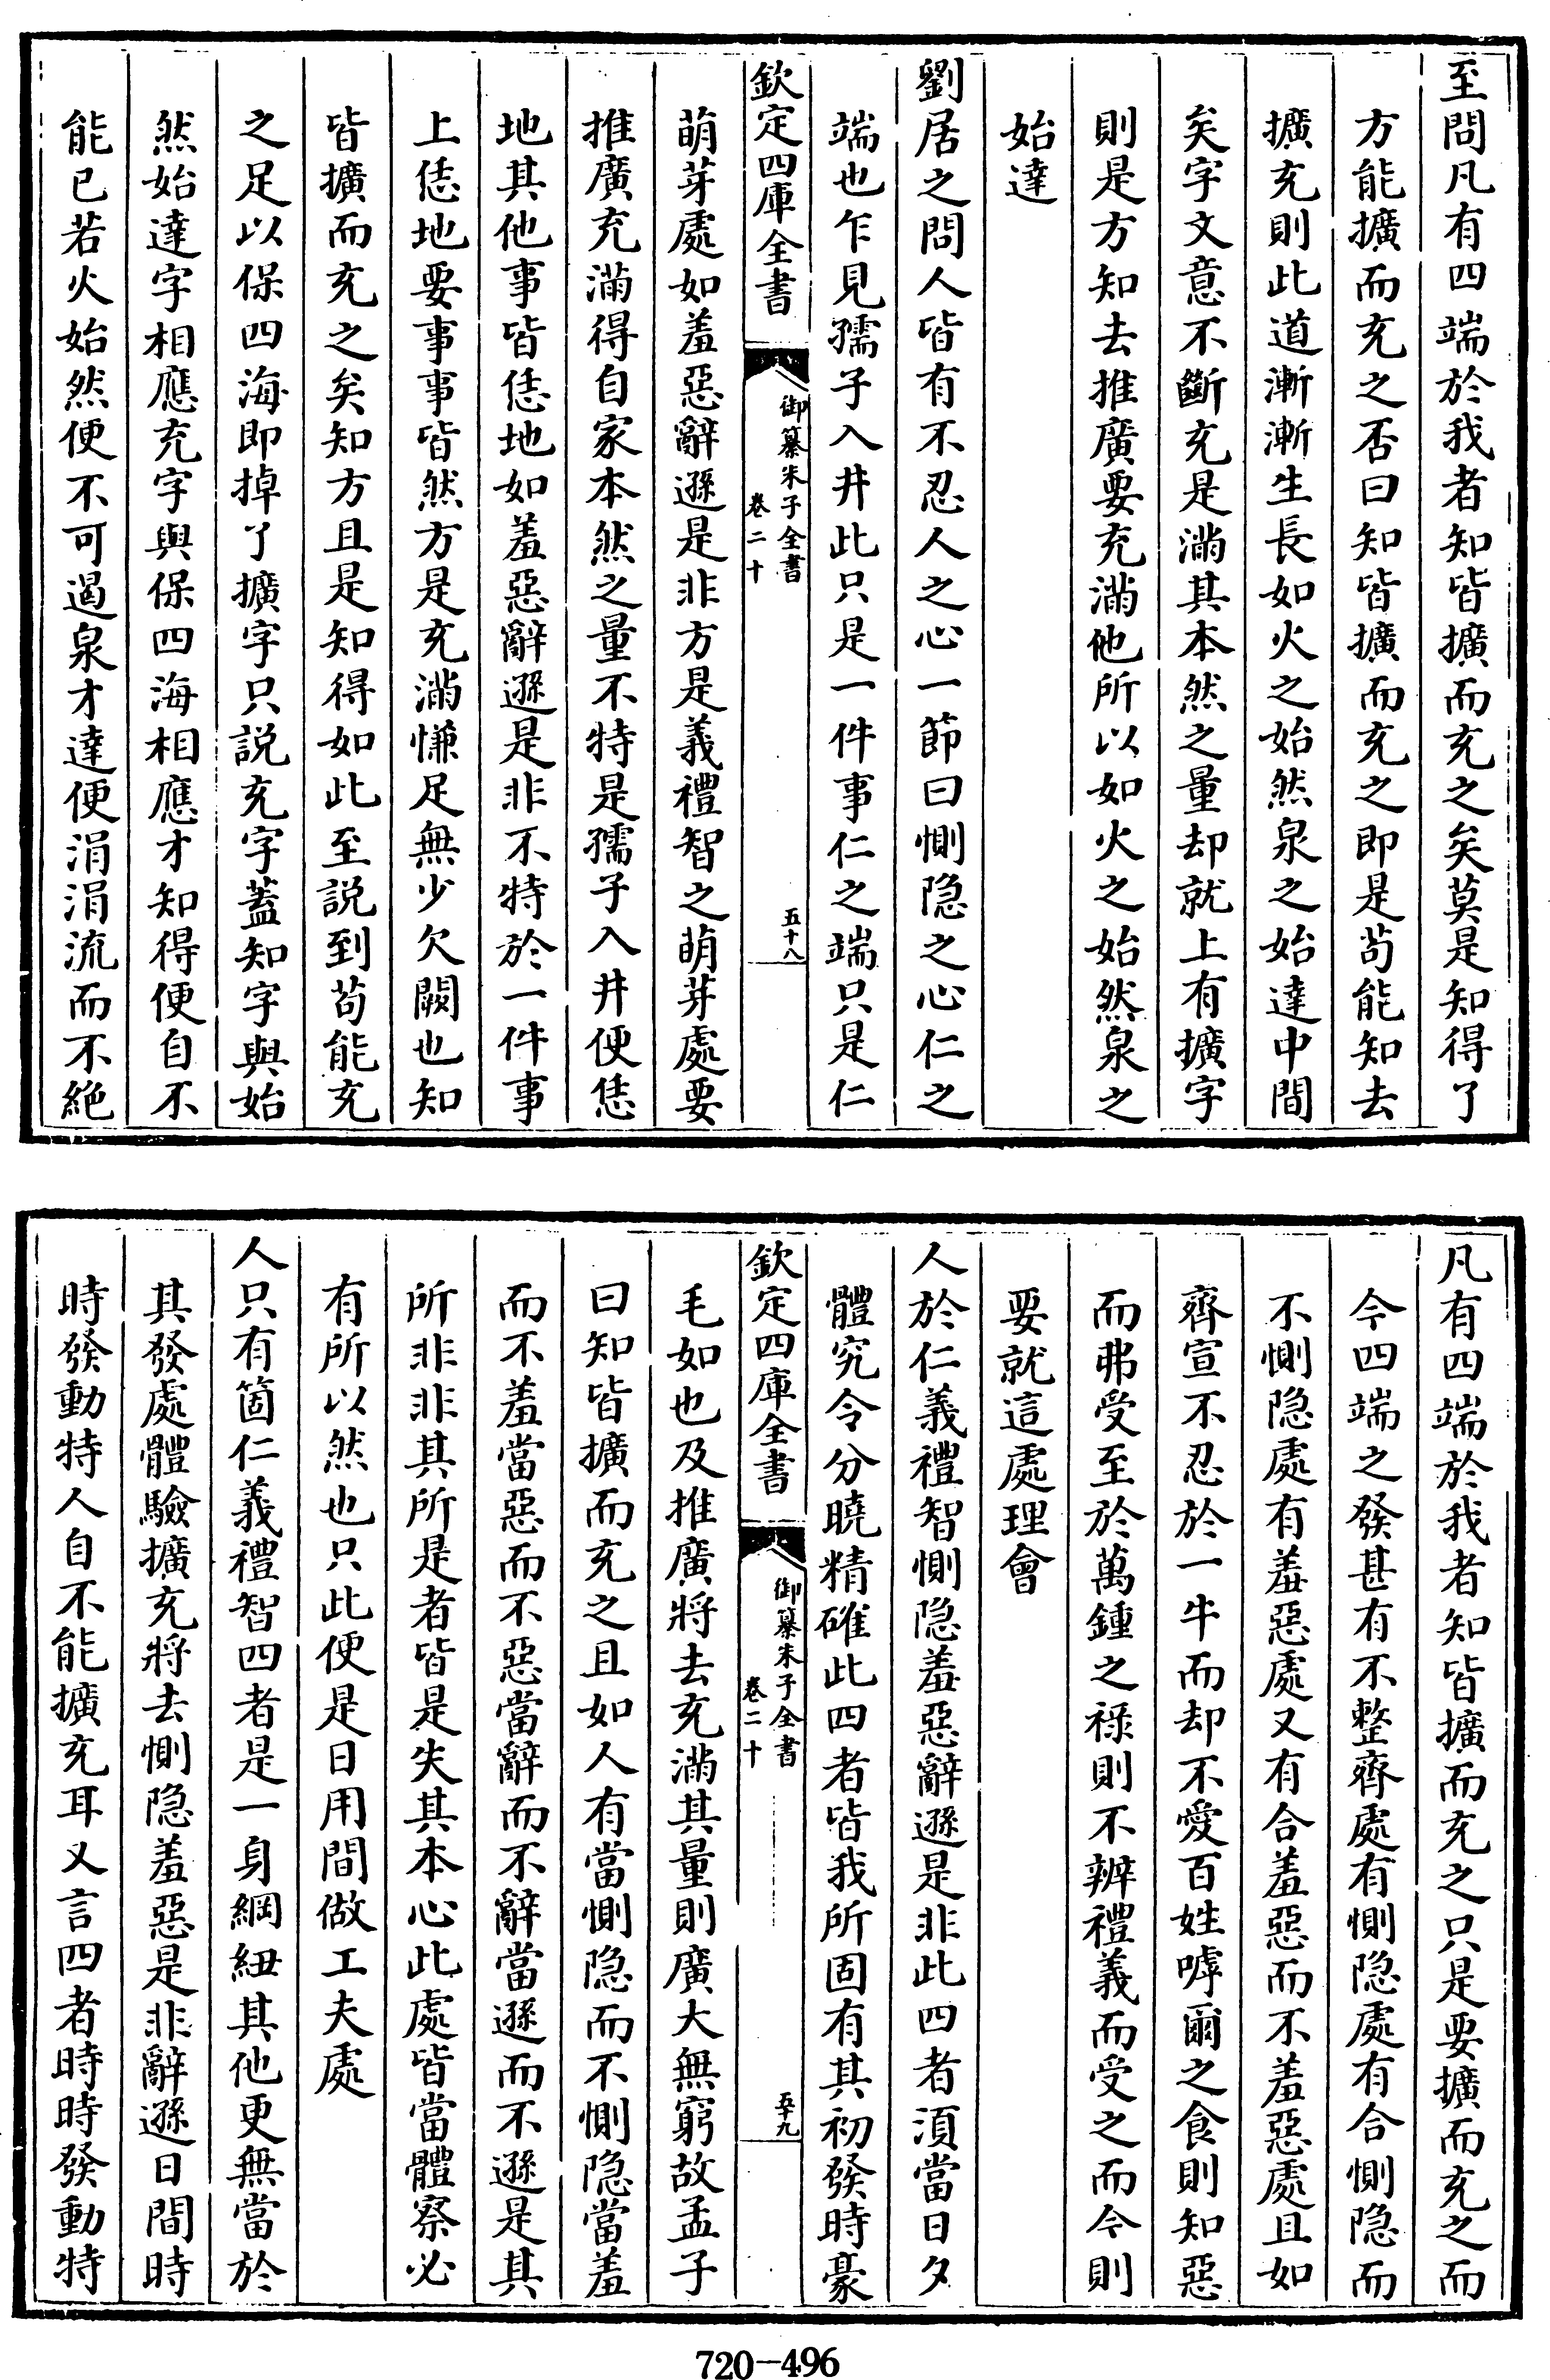 至問凡有四端於我者知皆擴而充之矣莫是知得了
方能擴而充之否曰知皆擴而充之即是茍能知去
擴充則此道漸漸生長如火之始然泉之始達中間
矣字文意不斷充是滿其本然之量却就上有擴字
則是方知去推廣要充滿他所以如火之始然泉之
始達
劉居之問人皆有不忍人之心一節曰惻隐之心仁之
端也乍見孺子入井此只是一件事仁之端只是仁
欽定四庫全書
御纂朱子全書
卷二十
五十八
萌芽處如羞惡辭遜是非方是義禮智之萌芽處要
推廣充滿得自家本然之量不特是孺子入井便恁
地其他事皆恁地如羞惡辭遜是非不特於一件事
上恁地要事事皆然方是充滿慊足無少欠闕也知
皆擴而充之矣知方且是知得如此至説到茍能充
之足以保四海即掉了擴字只説充字蓋知字與始
然始達字相應充字與保四海相應才知得便自不
能已若火始然便不可遏泉才達便涓涓流而不絶
凡有四端於我者知皆擴而充之只是要擴而充之而
今四端之發甚有不整齊處有惻隐處有合惻隐而
不惻隐處有羞惡處又有合羞惡而不羞惡處且如
齊宣不忍於一牛而却不愛百姓嘑爾之食則知惡
而弗受至於萬鍾之祿則不辨禮義而受之而今則
要就這處理會
人於仁義禮智惻隐羞惡辭遜是非此四者須當日夕
體究令分曉精確此四者皆我所固有其初發時豪
欽定四庫全書
御纂朱子全書
卷二十
五十九
毛如也及推廣將去充滿其量則廣大無窮故孟子
曰知皆擴而充之且如人有當惻隐而不惻隐當羞
而不羞當惡而不惡當辭而不辭當遜而不遜是其
所非非其所是者皆是失其本心此處皆當體察必
有所以然也只此便是日用間做工夫處
人只有箇仁義禮智四者是一身綱紐其他更無當於
其發處體驗擴充將去惻隐羞惡是非辭遜日間時
時發動特人自不能擴充耳又言四者時時發動特
720-496